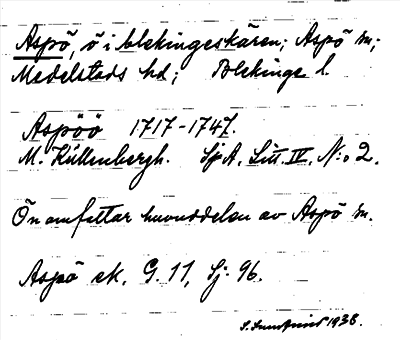 Aspö, ö i blekingeskären; Aspö sn;
Medelstads hd; Blekinge l.
Aspöö 1717-1747.
M. Küllenbergh. Sj.A. Litt. IV, N:o 2.
Ön omfattar huvuddelen av Aspö sn.
Aspö ek. G. 11, Sj: 96.
S. 1938.